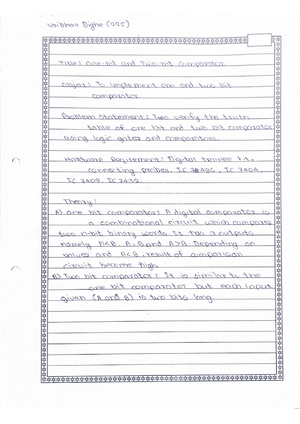 Vaibhav Dighe (225)
Title: One-bit and Two-bit comparator.
Object: To implement one and two bit
comparator
Problem Statement: Two verify the truth
table of one bit and two bit comparator
using logic gates and comparators.
Hardware Requirement: Digital trainer kit,
connecting probes, IC 7404,
IC 7408, IC 7432.
Theory:
A) One bit comparator: A digital comparator is
a combinational circuit which compares
two n-bit binary words. It has 3 outputs
namely A<B, A=B and A>B. Depending on
values and A&B, result of comparision
circuit become high
B) Two bit comparator: It is similar to the
one bit comparator but each input
given (A and B) is two bits long.